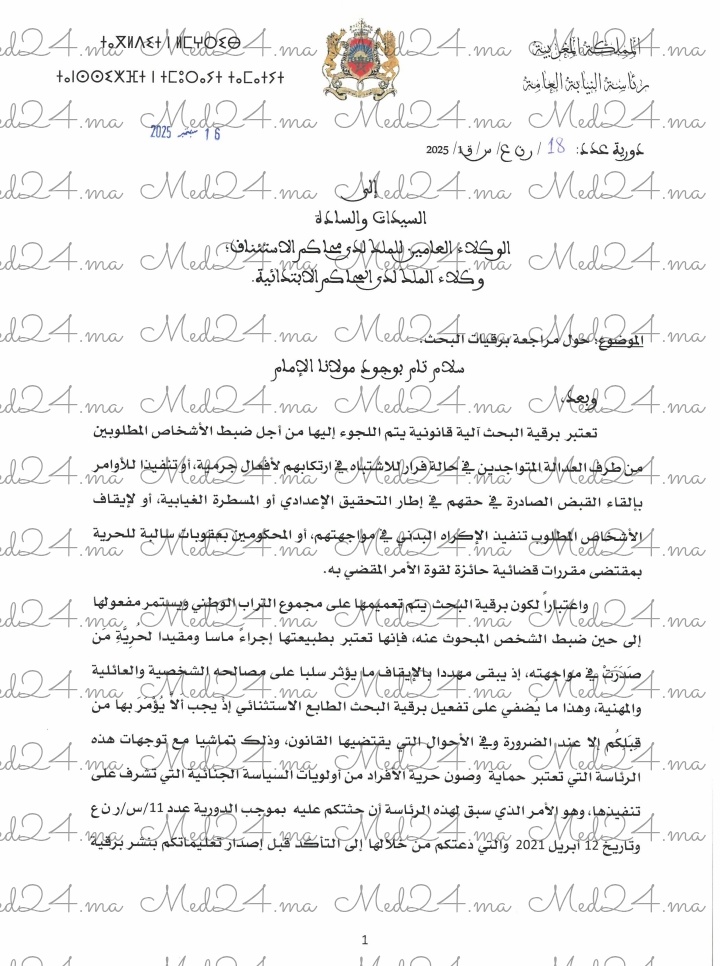 ⵜⴰⴳⵍⴷⵉⵜ ⵏ ⵍⵎⵖⵔⵉⴱ
ⵜⴰⵏⵙⵙⵉⵅⴼⵜ ⵏ ⵜⵎⵓⵔⴰⵢⵜ ⵜⴰⵎⴰⵜⴰⵢⵜ
المملكة المغربية
رئاسة النيابة العامة
16 سبتمبر 2025
دورية عدد: 18 / ر ن ع/ س/ ق1/ 2025
إلى
السيدات والسادة
الوكلاء العامين للملك لدى محاكم الاستئناف؛
وكلاء الملك لدى المحاكم الابتدائية.
الموضوع: حول مراجعة برقيات البحث.
سلام تام بوجود مولانا الإمام
وبعد،
تعتبر برقية البحث آلية قانونية يتم اللجوء إليها من أجل ضبط الأشخاص المطلوبين
من طرف العدالة المتواجدين في حالة فرار للاشتباه في ارتكابهم لأفعال جرمية، أو تنفيذا للأوامر
بإلقاء القبض الصادرة في حقهم في إطار التحقيق الإعدادي أو المسطرة الغيابية، أو لإيقاف
الأشخاص المطلوب تنفيذ الإكراه البدني في مواجهتهم، أو المحكومين بعقوبات سالبة للحرية
بمقتضى مقررات قضائية حائزة لقوة الأمر المقضي به.
واعتباراً لكون برقية البحث يتم تعميمها على مجموع التراب الوطني ويستمر مفعولها
إلى حين ضبط الشخص المبحوث عنه، فإنها تعتبر بطبيعتها إجراءً ماسا ومقيدا لحُريَّةِ مَن
صَدَرَتْ في مواجهته، إذ يبقى مهددا بالإيقاف ما يؤثر سلبا على مصالحه الشخصية والعائلية
والمهنية، وهذا ما يُضفي على تفعيل برقية البحث الطابع الاستثنائي إذْ يجب ألاَّ يُؤْمَرَ بها من
قِبَلِكُم إلا عند الضرورة وفي الأحوال التي يقتضيها القانون، وذلك تماشيا مع توجهات هذه
الرئاسة التي تعتبر حماية وصون حرية الأفراد من أولويات السياسة الجنائية التي تشرف على
تنفيذها، وهو الأمر الذي سبق لهذه الرئاسة أن حثتكم عليه بموجب الدورية عدد 11/س/ر ن ع
وتاريخ 12 أبريل 2021 والتي دعتكم من خلالها إلى التأكد قبل إصدار تعليماتكم بنشر برقية
1
Med24.ma